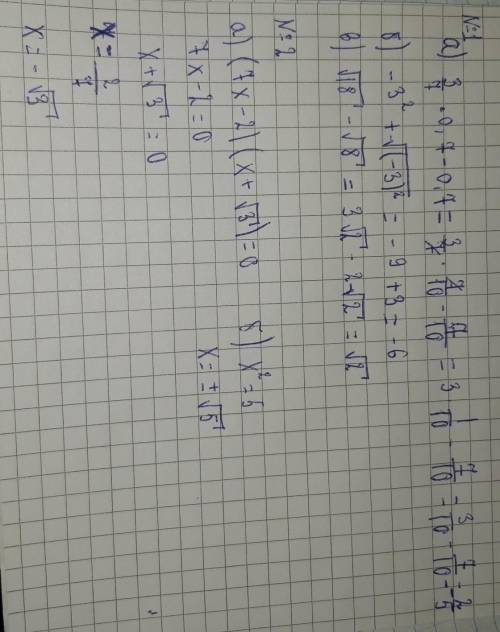 №1
а) 3/7 · 0,7 - 0,7 = 3/7 · 7/10 - 7/10 = 3 1/10 - 7/10 - 3/10 - 7/10 = 2/5
б) -3² + √(-3)² = -9 + 3 = -6
в) √18 - √8 = 3√2 - 2√2 = √2
№2
а) (7x-2)(x+√3)=0
7x-2=0
x+√3=0
x= 2/7
x= -√3
б) x²=5
x=±√5